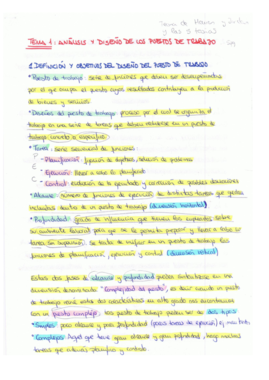 TEMA 1: ANÁLISIS Y DISEÑO DE LOS PUESTOS DE TRABAJO
1. DEFINICIÓN Y OBJETIVOS DEL DISEÑO DEL PUESTO DE TRABAJO
* Puesto de trabajo: serie de funciones que deben ser desempeñadas
por el que ocupa el puesto cuyos resultados contribuyen a la producción
de bienes y servicios
* Diseño del puesto de trabajo: proceso por el cual se organiza el
trabajo en una serie de tareas que deben realizarse en un puesto de
trabajo concreto o específico
* Tarea: serie secuencial de funciones
P - Planificación: fijación de objetivos, solución de problemas
E - Ejecución: llevar a cabo lo planificado
C - Control: evaluación de lo ejecutado y corrección de posibles desviaciones
* Alcance: número de funciones de ejecución de distintas tareas que están
incluidas dentro de un puesto de trabajo (dimensión horizontal)
* Profundidad: grado de influencia que tienen los empleados sobre
su
tarea sin supervisión. Se trata de incluir en un puesto de trabajo las
funciones de planificación, ejecución y control (dimensión vertical)
Estos dos ejes de alcance y profundidad pueden sintetizarse en una
dimensión denominada "Complejidad del puesto", es decir cuando un puesto
de trabajo reúne estas dos características en alto grado nos encontramos
con un puesto complejo. Los puestos de trabajo pueden ser de dos tipos:
* Simples: poco alcance y poca profundidad (pocas tareas de ejecución)
* Complejos: Aquel que tiene gran alcance y gran profundidad, hago muchas
tareas que además planifico y controlo